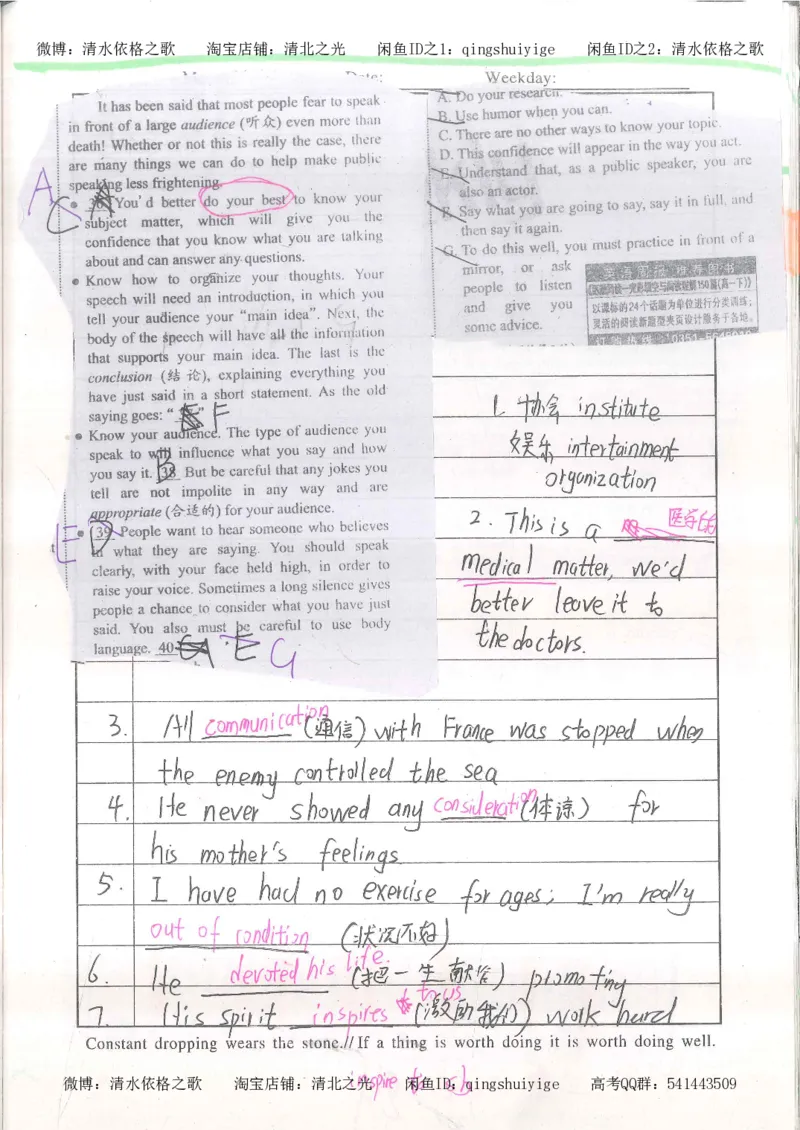 微博：清水依格之歌 淘宝店铺：清北之光 闲鱼ID之1：qingshuiyige 闲鱼ID之2：清水依格之歌
Date: Weekday:
It has been said that most people fear to speak
in front of a large audience (听众) even more than
death! Whether or not this is really the case, there
are many things we can do to help make public
speaking less frightening.
A
C
● You'd better do your best to know your
subject matter, which will give you the
confidence that you know what you are talking
about and can answer any questions.
● Know how to organize your thoughts. Your
speech will need an introduction, in which you
tell your audience your "main idea". Next, the
body of the speech will have all the information
that supports your main idea. The last is the
conclusion (结论), explaining everything you
have just said in a short statement. As the old
saying goes: " F "
● Know your audience. The type of audience you
speak to will influence what you say and how
you say it. 38 B But be careful that any jokes you
tell are not impolite in any way and are
appropriate (合适的) for your audience.
E
● 39 D People want to hear someone who believes
in what they are saying. You should speak
clearly, with your face held high, in order to
raise your voice. Sometimes a long silence gives
people a chance to consider what you have just
said. You also must be careful to use body
language. 40 E G
A. Do your research.
B. Use humor when you can.
C. There are no other ways to know your topic.
D. This confidence will appear in the way you act.
E. Understand that, as a public speaker, you are
also an actor.
F. Say what you are going to say, say it in full, and
then say it again.
G. To do this well, you must practice in front of a
mirror, or ask
people to listen
and give you
some advice.
以课标的24个话题为单位进行分类训练；
灵活的阅读新题型夹页设计服务于各地。
1. 协会 institute
娱乐 intertainment
organization
2. This is a 医学的
medical matter, we'd
better leave it to
the doctors.
3. All communication (通信) with France was stopped when
the enemy controlled the sea
4. He never showed any consideration (体谅) for
his mother's feelings
5. I have had no exercise for ages; I'm really
out of condition (状况不好)
6. He devoted his life (把一生献给) promoting
7. His spirit inspires us (激励我们) to work hard
Constant dropping wears the stone.//If a thing is worth doing it is worth doing well.
微博：清水依格之歌 淘宝店铺：清北之光 闲鱼ID：qingshuiyige 高考QQ群：541443509